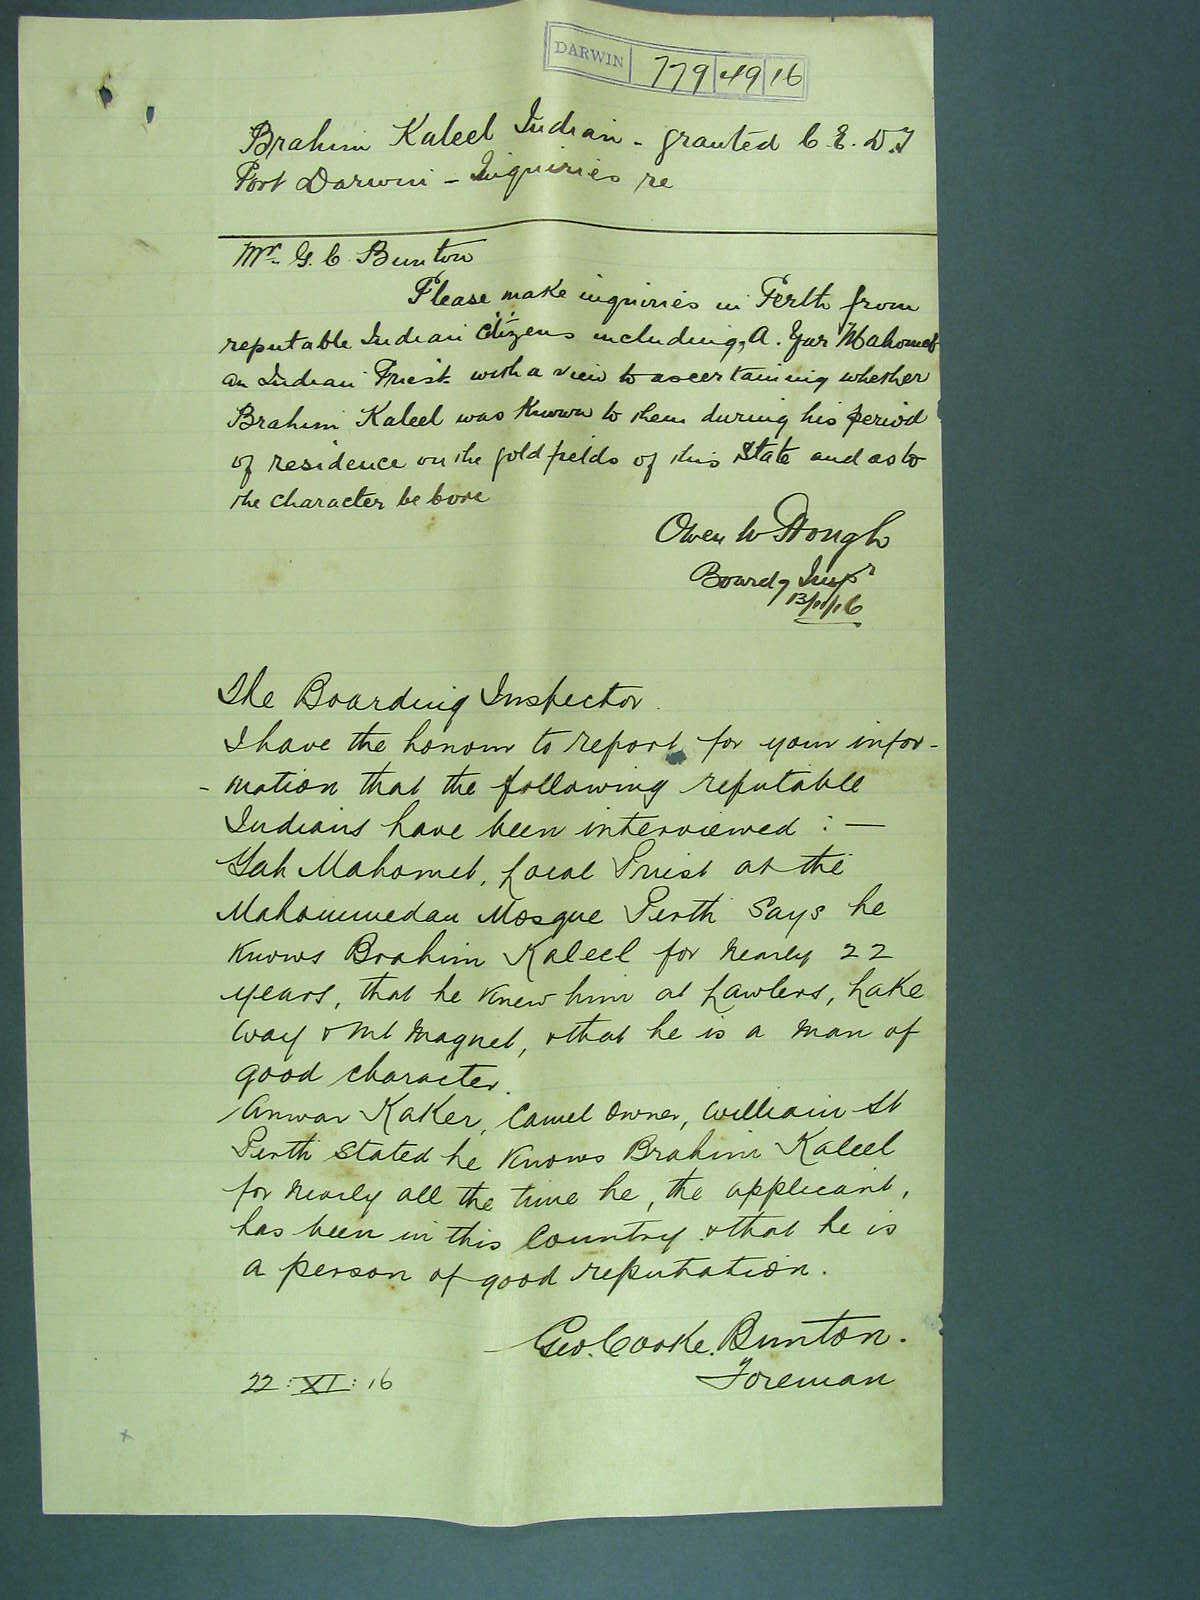 DARWIN 779 49 16
Brahim Kaleel Indian - granted C.E.D.T
Port Darwin - Inquiries re
Mr. G. C Bunton
Please make inquiries in Perth from
reputable Indian citizens including, A. Yar Mahomet
an Indian Priest with a view to ascertaining whether
Brahim Kaleel was known to them during his period
of residence on the goldfields of this State and as to
the character he bore
Owen W
Boardg Inspr
13/11/16
The Boarding Inspector.
I have the honour to report for your infor-
-mation that the following reputable
Indians have been interviewed :-
Yah Mahomet, Local Priest at the
Mahommedan Mosque Perth says he
knows Brahim Kaleel for nearly 22
years, that he knew him at Lawlers, Lake
Way & Mt Magnet, & that he is a man of
good character.
Anwar Kaker, Camel Owner, William St
Perth stated he knows Brahim Kaleel
for nearly all the time he, the applicant,
has been in this Country & that he is
a person of good reputation.
Geo. Cooke. Bunton.
Foreman
22 : XI : 16